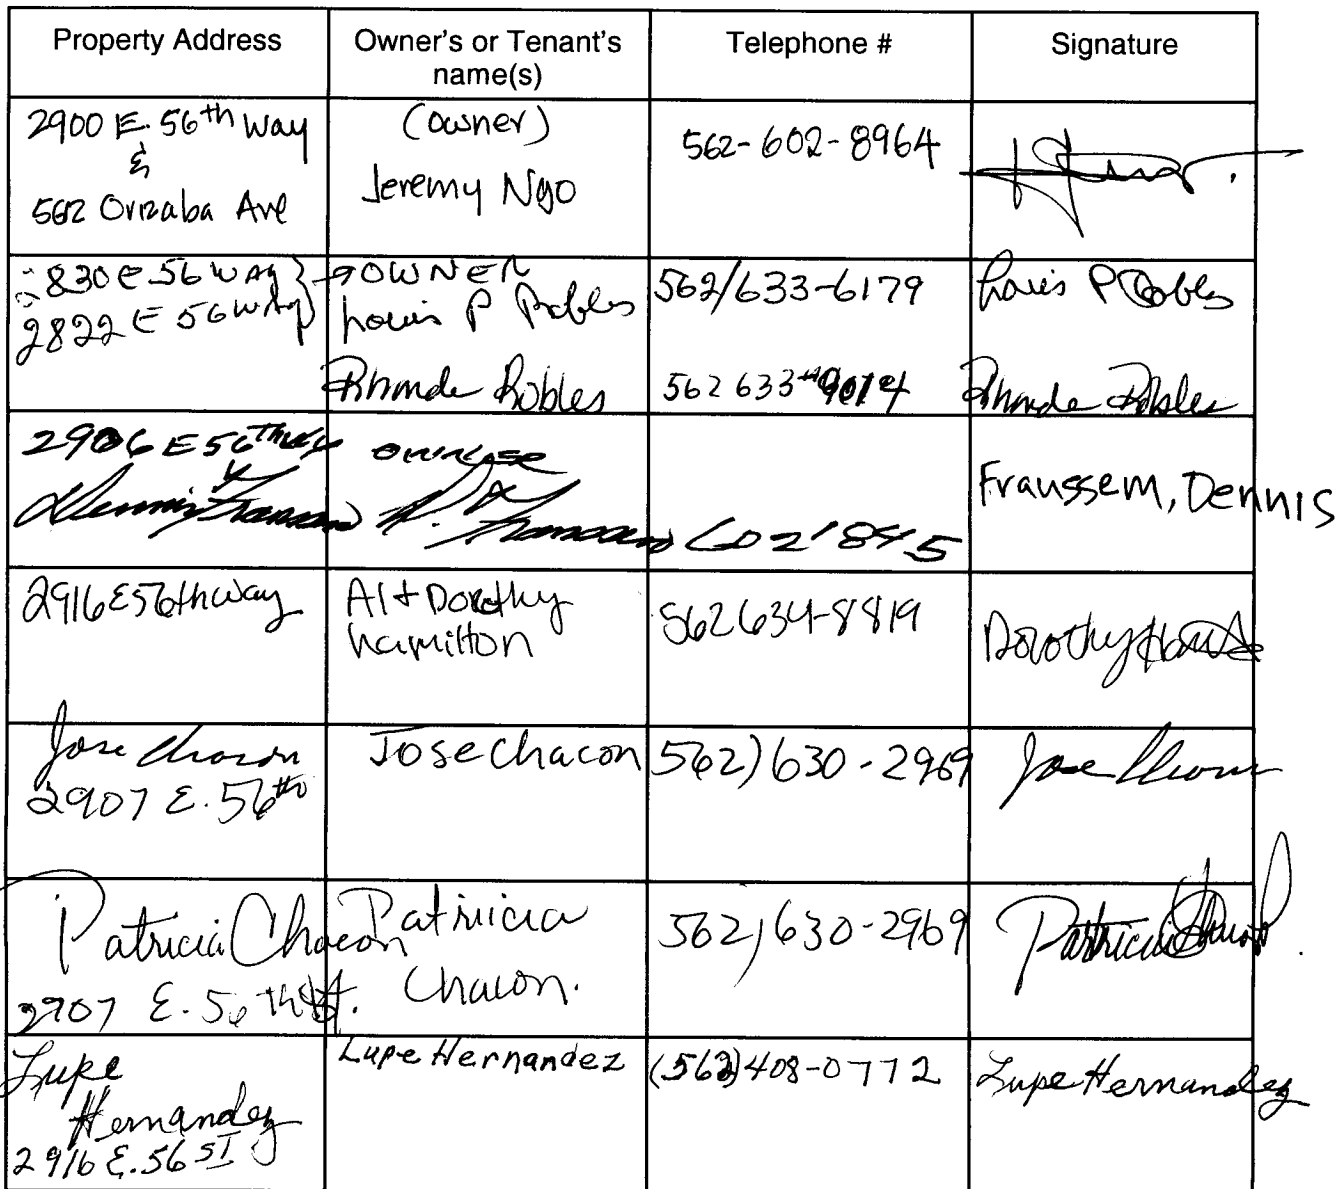 Property Address
Owner's or Tenant's
name(s)
Telephone #
Signature
2900 E. 56th Way
&
Orizaba Ave
(owner)
Jeremy Ngo
562-602-8964
830 E 56 Way
2822 E 56 Way
OWNER
Louis P Robles
562/633-6179
Louis P Robles
Rhonda Robles
562 633
Rhonda Robles
2906 E 56th Way
Dennis
owner
D.
602 1845
Fraussem, Dennis
2916 E 56th way
Al + Dorothy
hamilton
562 634-8819
Dorothy
Jose Chacon
2907 E. 56th
Jose Chacon
562) 630-2969
Jose Chacon
Patricia Chacon
2907 E. 56th St.
Patricia
Chacon.
562) 630-2969
Patricia Chacon
Lupe
Hernandez
2916 E. 56 ST
Lupe Hernandez
(562) 408-0772
Lupe Hernandez